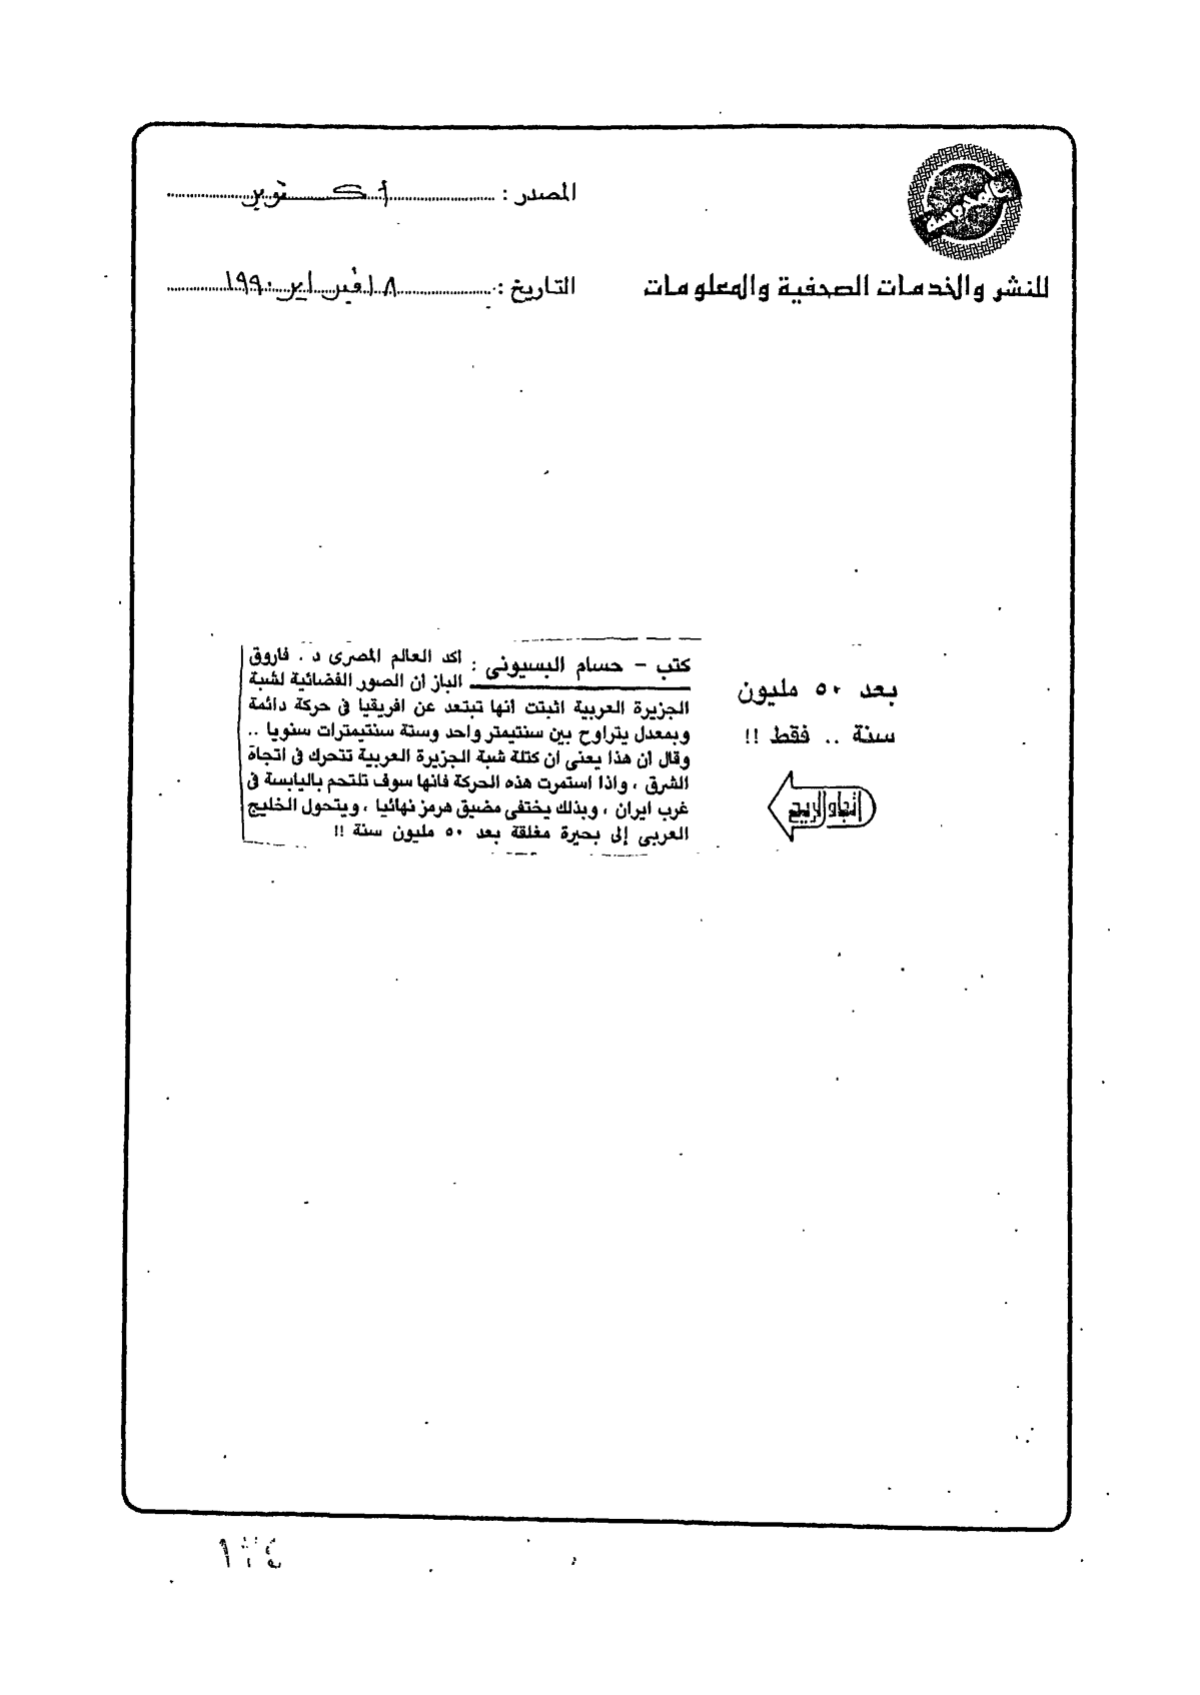 المصدر : أكتوبر
للنشر والخدمات الصحفية والمعلومات
التاريخ : ١٨ فبراير ١٩٩٠
بعد ٥٠ مليون
سنة .. فقط !!
إتجاه الريح
كتب - حسام البسيونى : اكد العالم المصرى د . فاروق
الباز ان الصور الفضائية لشبة
الجزيرة العربية اثبتت انها تبتعد عن افريقيا فى حركة دائمة
وبمعدل يتراوح بين سنتيمتر واحد وستة سنتيمترات سنويا ..
وقال ان هذا يعنى ان كتلة شبة الجزيرة العربية تتحرك فى اتجاة
الشرق ، واذا استمرت هذه الحركة فانها سوف تلتحم باليابسة فى
غرب ايران ، وبذلك يختفى مضيق هرمز نهائيا ، ويتحول الخليج
العربى إلى بحيرة مغلقة بعد ٥٠ مليون سنة !!